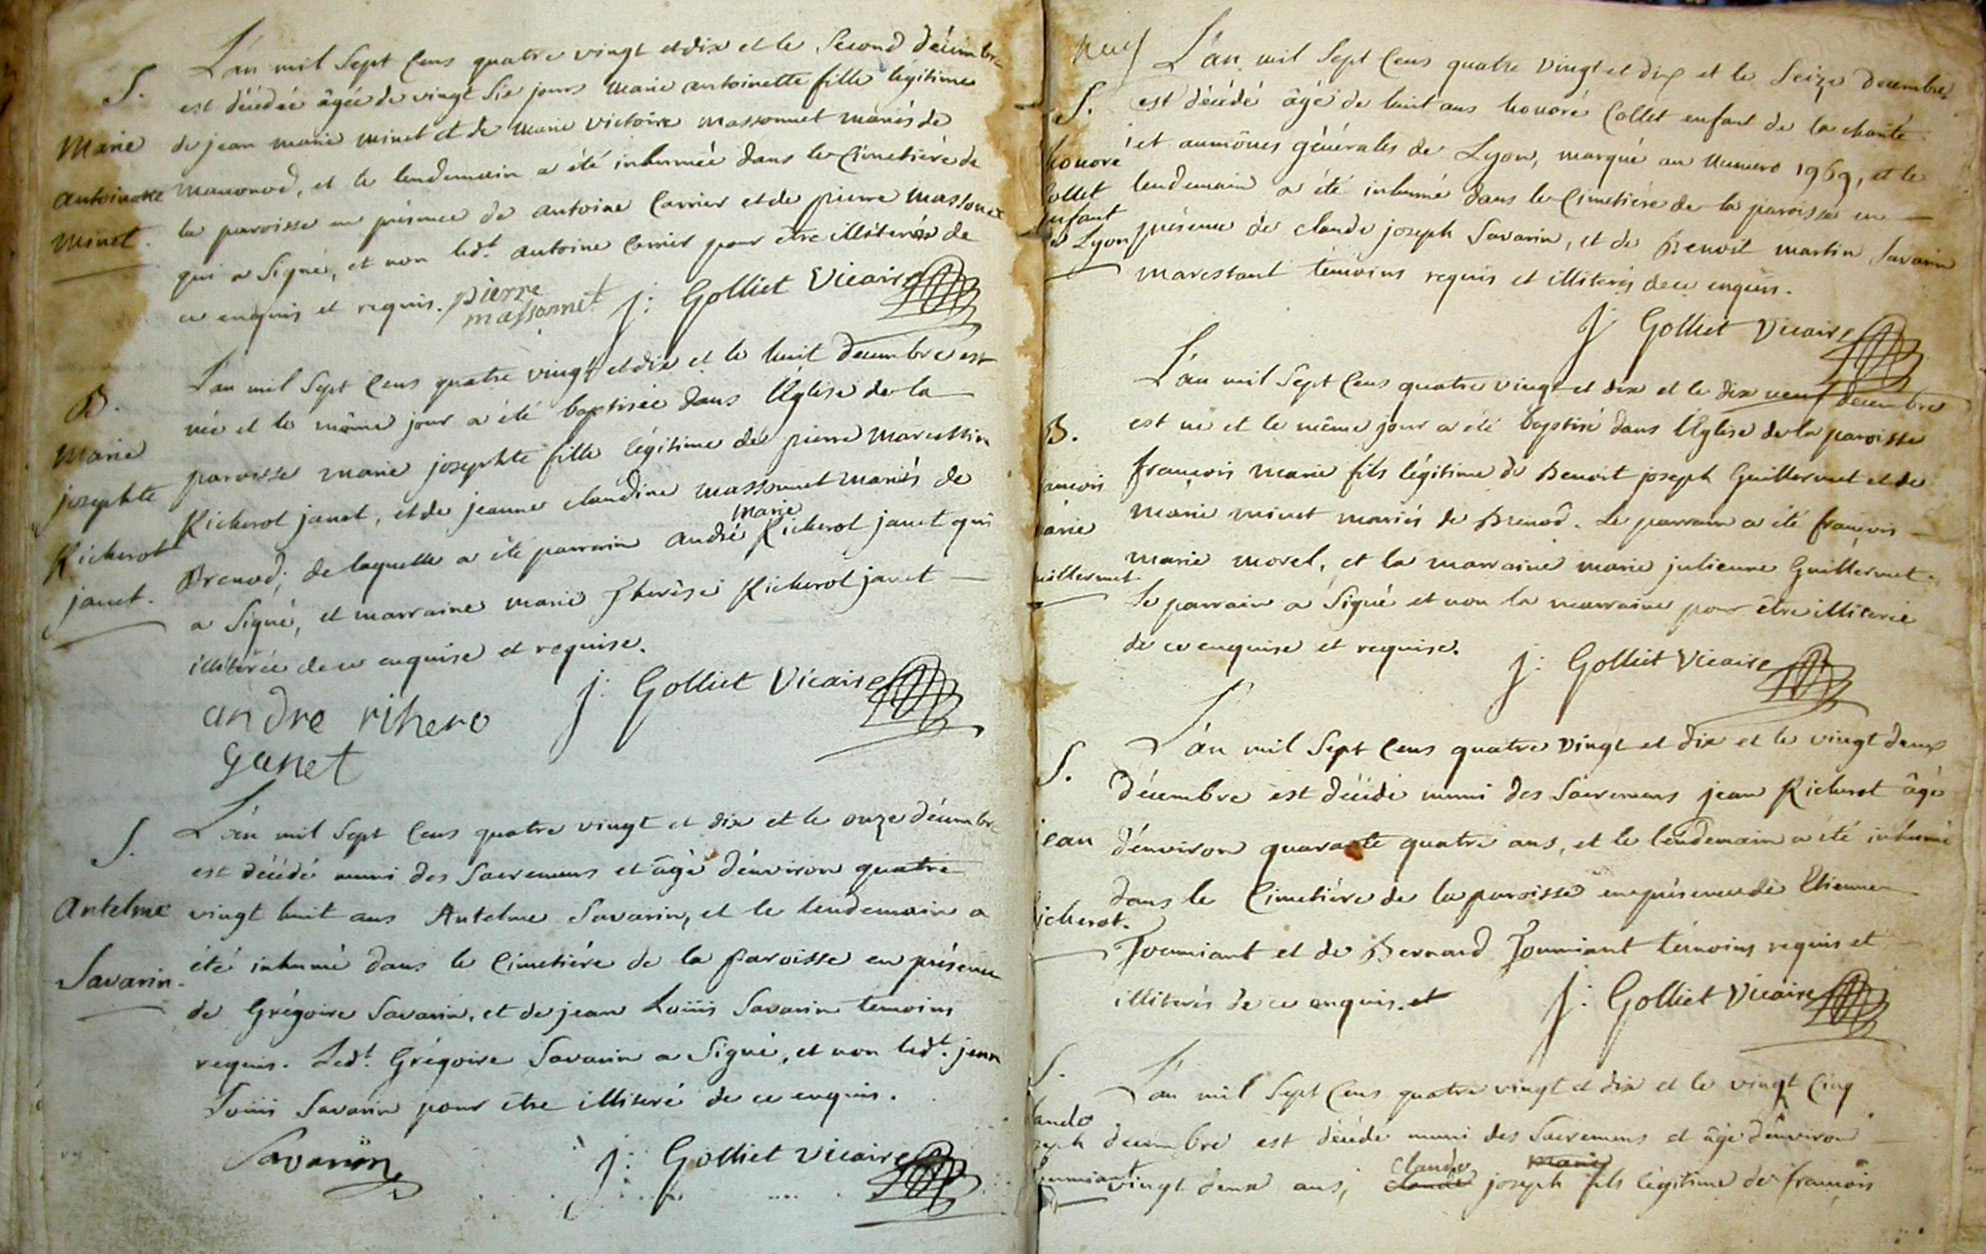 S.
Marie
Antoinette
Minet.
L'an mil Sept Cens quatre vingt et dix et le Second décembre
est décédée âgée de vingt Six jours Marie antoinette fille légitime
de jean marie minet et de Marie Victoire Massonnet mariés de
Macconod, et le lendemain a été inhumée dans le Cimetière de
la paroisse en présence de antoine Carrier et de pierre Massonnet
qui a Signé, et non led.t antoine Carrier pour être illiteré de
ce enquis et requis. pierre
massonnet
j: Golliet Vicaire
B.
Marie
josephte
Richerot
janet.
L'an mil Sept Cens quatre vingt et dix et le huit decembre est
née et le même jour a été baptisée dans l'Eglise de la
paroisse marie josephte fille légitime de pierre Marcellin
Richerot janet, et de jeanne claudine massonnet mariés de
marie
Brenod; de laquelle a été parrain andré Richerot janet qui
a Signé, et marraine marie Therèse Richerot janet
illiterée de ce enquise et requise.
j: Golliet Vicaire
andre rihero
ganet
S.
Antelme
Savarin.
L'an mil Sept Cens quatre vingt et dix et le onze décembre
est décédé muni des Sacremens et âgé d'environ quatre
vingt huit ans Antelme Savarin, et le lendemain a
été inhumé dans le Cimetière de la paroisse en présence
de Grégoire Savarin, et de jean Louis Savarin temoins
requis. Led.t Grégoire Savarin a Signé, et non led.t jean
Louis Savarin pour être illiteré de ce enquis.
Savarin
j: Golliet Vicaire
neuf
S.
honore
Collet
enfant
de Lyon
L'an mil Sept Cens quatre vingt et dix et le Seize decembre
est décédé âgé de huit ans honoré Collet enfant de la charité
et aumônes générales de Lyon, marqué au numero 1969, et le
lendemain a été inhumé dans le Cimetière de la paroisse en
présence de claude joseph Savarin, et de Benoit martin Savarin
marestant temoins requis et illiterés de ce enquis.
j: Golliet Vicaire
B.
ancois
arie
uillermet
L'an mil Sept Cens quatre vingt et dix et le dix neuf decembre
est né et le même jour a été baptisé dans l'Eglise de la paroisse
françois marie fils légitime de Benoit joseph Guillermet et de
Marie minet mariés de Brenod. Le parrain a été françois
marie morel, et la marraine marie julienne Guillermet.
Le parrain a Signé et non la marraine pour être illiterée
de ce enquise et requise.
j: Golliet Vicaire
S.
jean
icherot.
L'an mil Sept Cens quatre vingt et dix et le vingt deux
décembre est décédé muni des Sacremens jean Richerot âgé
d'environ quarante quatre ans, et le lendemain a été inhumé
dans le Cimetière de la paroisse en présence de Etienne
Jouvniant et de Bernard Jouvniant témoins requis et
illiterés de ce enquis. et
j: Golliet Vicaire
S.
aude
seph
L'an mil Sept Cens quatre vingt et dix et le vingt Cinq
decembre est décédé muni des Sacremens et âgé d'environ
Claude marie
vingt deux ans, claude joseph fils légitime de françois